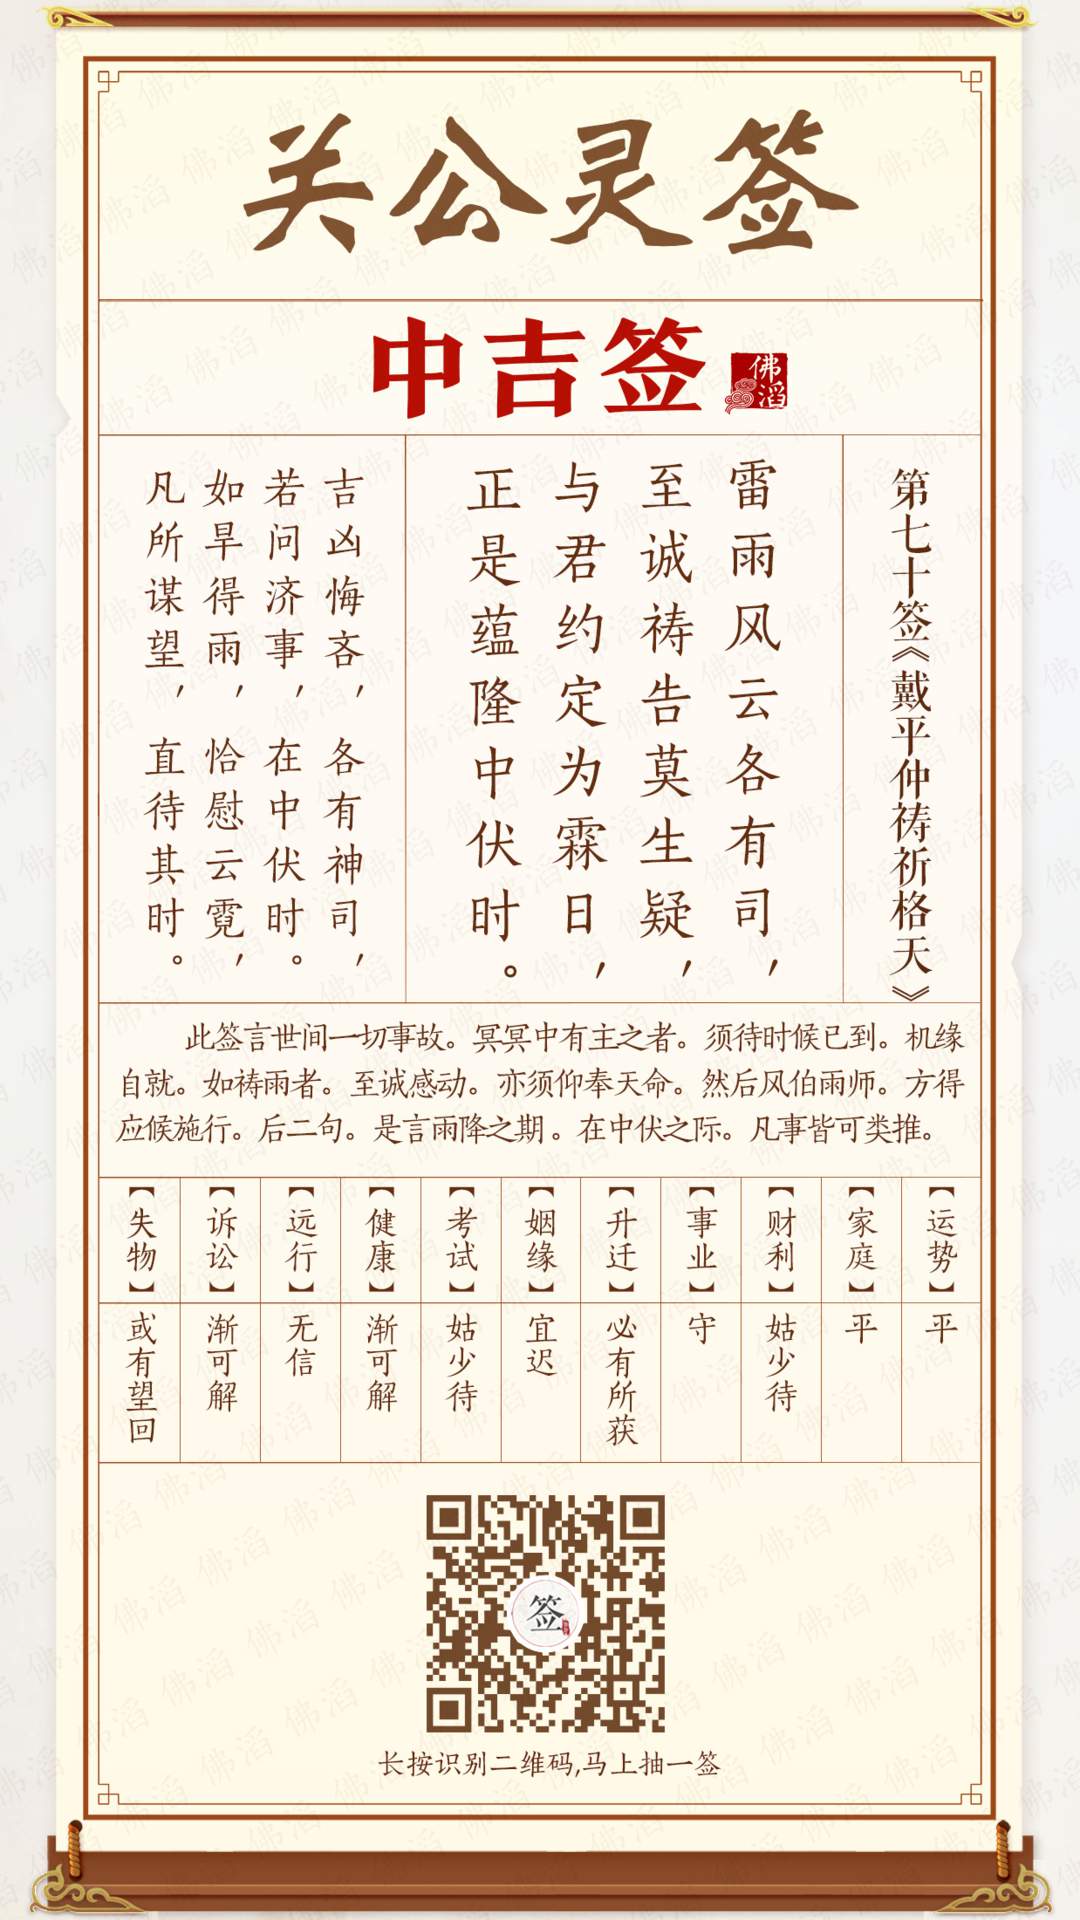 关公灵签
中吉签
佛滔
第七十签《戴平仲祷祈格天》
雷雨风云各有司，
至诚祷告莫生疑，
与君约定为霖日，
正是蕴隆中伏时。
吉凶悔吝，各有神司，
若问济事，在中伏时。
如旱得雨，恰慰云霓，
凡所谋望，直待其时。
此签言世间一切事故。冥冥中有主之者。须待时候已到。机缘
自就。如祷雨者。至诚感动。亦须仰奉天命。然后风伯雨师。方得
应候施行。后二句。是言雨降之期。在中伏之际。凡事皆可类推。
【运势】
平
【家庭】
平
【财利】
姑少待
【事业】
守
【升迁】
必有所获
【姻缘】
宜迟
【考试】
姑少待
【健康】
渐可解
【远行】
无信
【诉讼】
渐可解
【失物】
或有望回
签
长按识别二维码,马上抽一签